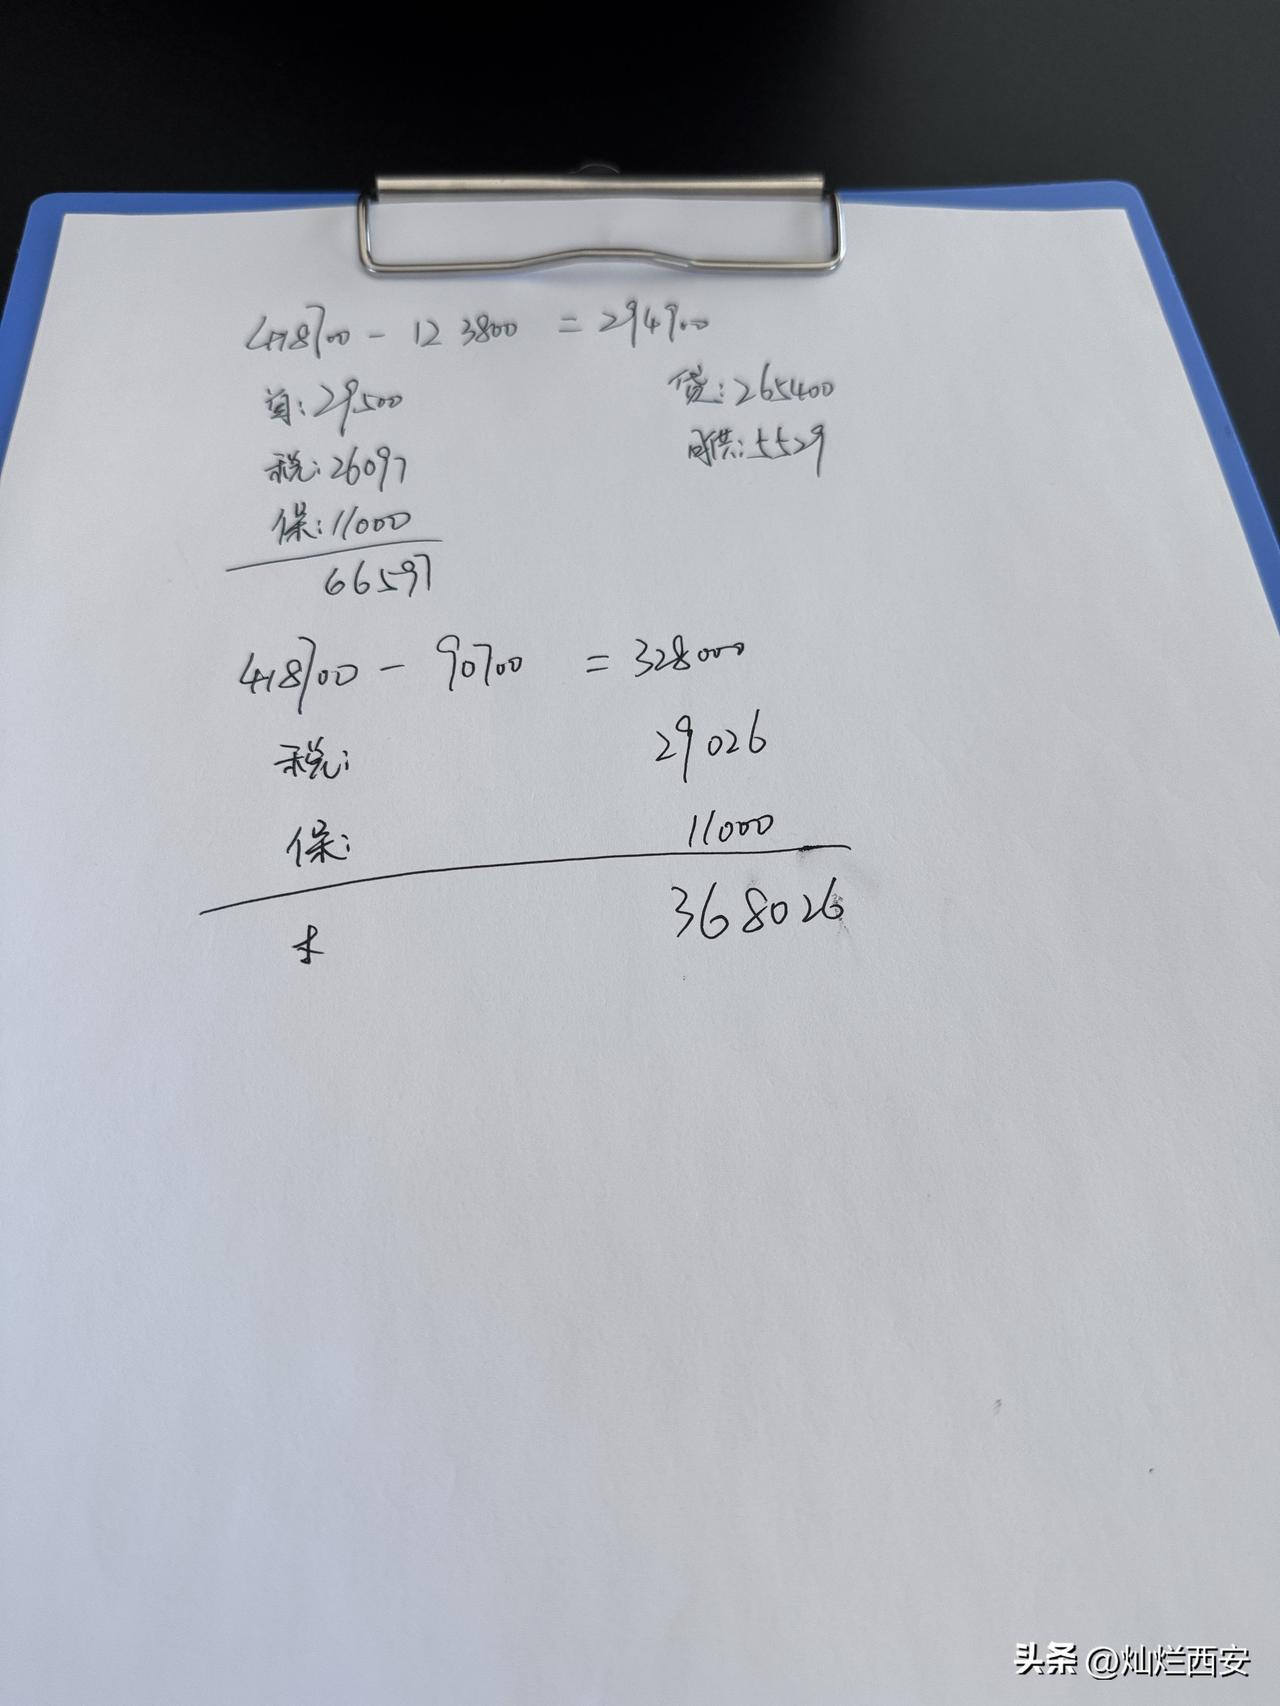 418700 - 123800 = 294900
首:29500
贷:265400
税:26097
月供:5529
保:11000
66597
418700 - 90700 = 328000
税: 29026
保: 11000
368026
头条 @灿烂西安